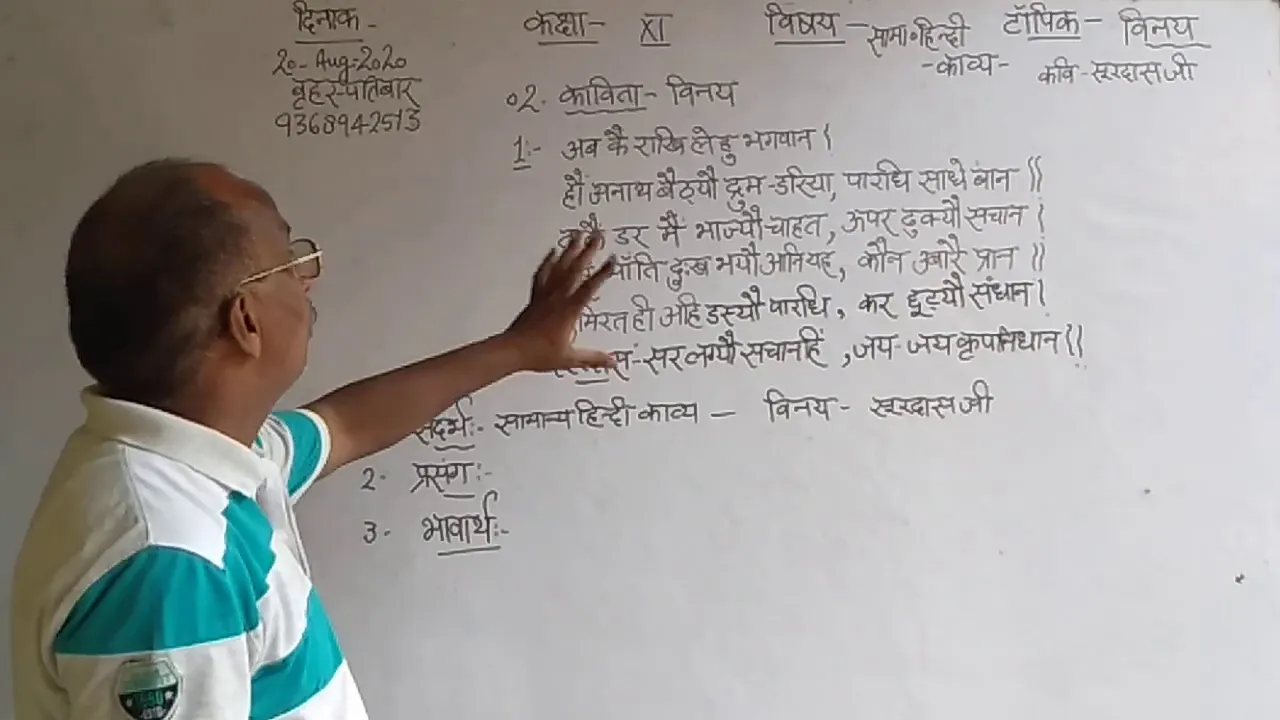 दिनाक -
20 - Aug - 2020
बृहस्पतिबार
9368942513
कक्षा - XI
विषय - सामा॰ हिन्दी
- काव्य -
टॉपिक - विनय
कवि - सूरदास जी
02. कविता - विनय
1:- अब कै राखि लेहु भगवान।
हौं अनाथ बैठ्यौ द्रुम-डरिया, पारधि साधे बान॥
डर मैं भाज्यौ चाहत, ऊपर ढुक्यौ सचान।
भाँति दुःख भयौ आनि यह, कौन उबारै प्रान॥
ही अहि डस्यौ पारधि, कर छूट्यौ संधान।
सर लग्यौ सचानहिं, जय-जय कृपानिधान॥
संदर्भ:- सामान्य हिन्दी काव्य - विनय - सूरदास जी
2. प्रसंग:-
3. भावार्थ:-